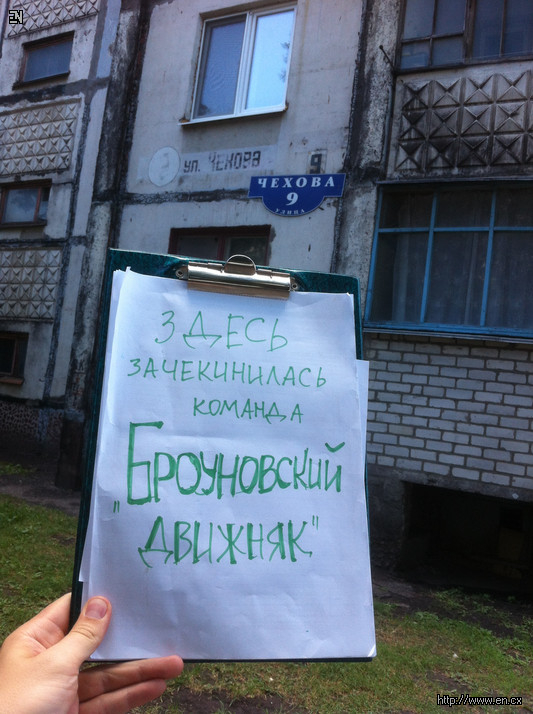 EN
ул. ЧЕХОВА 9
ЧЕХОВА
9
УЛИЦА
ЗДЕСЬ
ЗАЧЕКИНИЛАСЬ
КОМАНДА
"БРОУНОВСКИЙ
ДВИЖНЯК"
http://www.en.cx